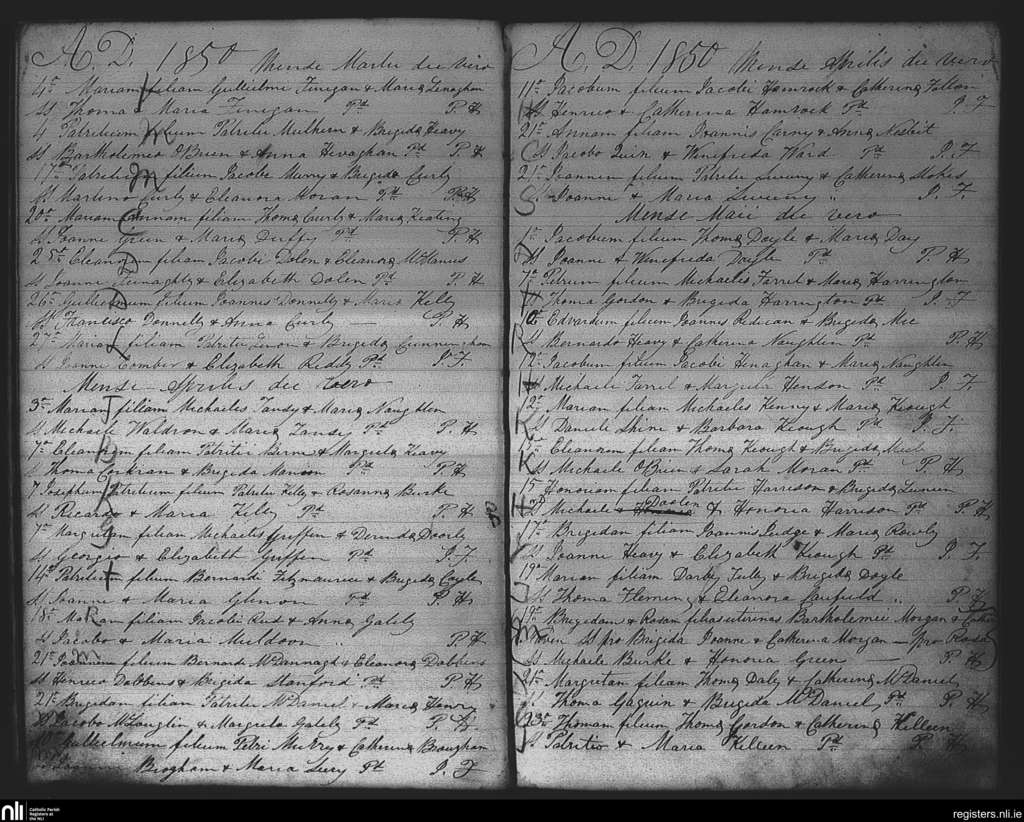 A. D. 1850 Mense Martii die vero
4a Mariam filiam Gulielmi Finegan & Maria Lenaghan
Ss Thoma & Maria Finegan Pd P. H
4 Patritium filium Patritii Mulhern & Brigida Heavy
Ss Bartholemeo O'Brien & Anna Hevaghan Pd P. H
17a filium Jacobi Murry & Brigida Curly
Ss Martino Curly & Eleanora Moran Pd P. H
20a Mariam Annam filiam Thoma Curly & Maria Keating
Ss Joanne Green & Maria Duffy Pd P. H
25a Eleanoram filiam Jacobi Dolen & Eleanora McManus
Ss Joanne & Elizabeth Dolen Pd P. H
26a Gulielmum filium Joannis Donnelly & Maria Kelly
Ss Francisco Donnelly & Anna Curly — P. H
27a Mariam filiam Patritii & Brigida Cunningham
Ss Joanne Comber & Elizabeth Reddy Pd P. F
Mense Aprilis die vero
3a Mariam filiam Michaelis Tansy & Maria Naughten
Ss Michaele Waldron & Maria Tansy Pd P. H
7a Eleanoram filiam Patritii & Margarita Heavy
Ss Thoma Corkran & Brigida Pd P. H
7 Josephum Patritium filium Patritii Kelly & Rosanna Burke
Ss Ricardo & Maria Kelly Pd P. H
7a Margritam filiam Michaelis Griffen & Doorly
Ss Georgio & Elizabeth Griffen Pd P. F
14a Patritium filium Bernardi Fitzmaurice & Brigida Coyle
Ss Joanne & Maria Glenon Pd P. H
18a filiam Jacobi Reid & Anna Gately
Ss Jacobo & Maria Muldoon .. P. H
21a Joannem filium Bernardi McDannagh & Eleanora Dobbins
Ss Henrico Dobbins & Brigida Stanford Pd P. H
21a Brigidam filiam Patritii McDaniel & Maria Henry
Ss Jacobo McLaughlin & Margrita Gately Pd P. H
Gulielmum filium Petri & Catherina Brougham
Brogham & Maria Pd P. F
A. D. 1850 Mense Aprilis die vero
11a Jacobum filium Jacobi Hamrock & Catherina Fallon
Ss Henrico & Catherina Hamrock Pd P. F
21a Annam filiam Joannis Carny & Anna Nesbit
Ss Jacobo Quin & Winefrida Ward Pd P. F
21a Joannem filium Patritii Sweeny & Catherina Stokes
Ss Joanne & Maria Sweeny .. P. F.
Mense Maii die vero
1a Jacobum filium Thoma Doyle & Maria Day
Ss Joanne & Winefrida Doyle Pd P. H
7a Petrum filium Michaelis Farrel & Maria Harrington
Ss Thoma Gordon & Brigida Harrington Pd P. F
Edvardum filium Joannis Redican & Brigida Mee
Ss Bernardo Heavy & Catherina Naughten Pd P. H
12a Jacobum filium Jacobi Henaghan & Maria Naughten
Ss Michaele Farrel & Margrita Henson Pd P. F
12a Mariam filiam Michaelis Kenny & Maria Keough
Ss Daniele Shine & Barbara Keough Pd P. F.
Eleanoram filiam Thoma Keough & Brigida
Ss Michaele O'Brien & Sarah Moran Pd P. H
15 Honoriam filiam Patritii Harrison & Brigida
Doolen
Ss Michaele & Honoria Harrison Pd P. H
17a Brigidam filiam Joannis & Maria Rowly
Ss Joanne Heavy & Elizabeth Keough Pd P. F
19a Mariam filiam Darby Fully & Brigida Doyle
Ss Thoma Fleming & Eleanora Caufield .. P. H
19a Brigidam & Rosam filias uterinas Bartholemei Morgan &
Ss pro Brigida Joanne & Catherina Morgan — pro Rosa
Ss Michaele Burke & Honoria Green — P. H
21a Margritam filiam Thoma Daly & Catherina McDaniel
Ss Thoma & Brigida McDaniel Pd P. H
23a Thomam filium Thoma Gordon & Catherina Killeen
Ss Patritio & Maria Killeen Pd P. H
nli
Catholic Parish
Registers at
the NLI
registers.nli.ie